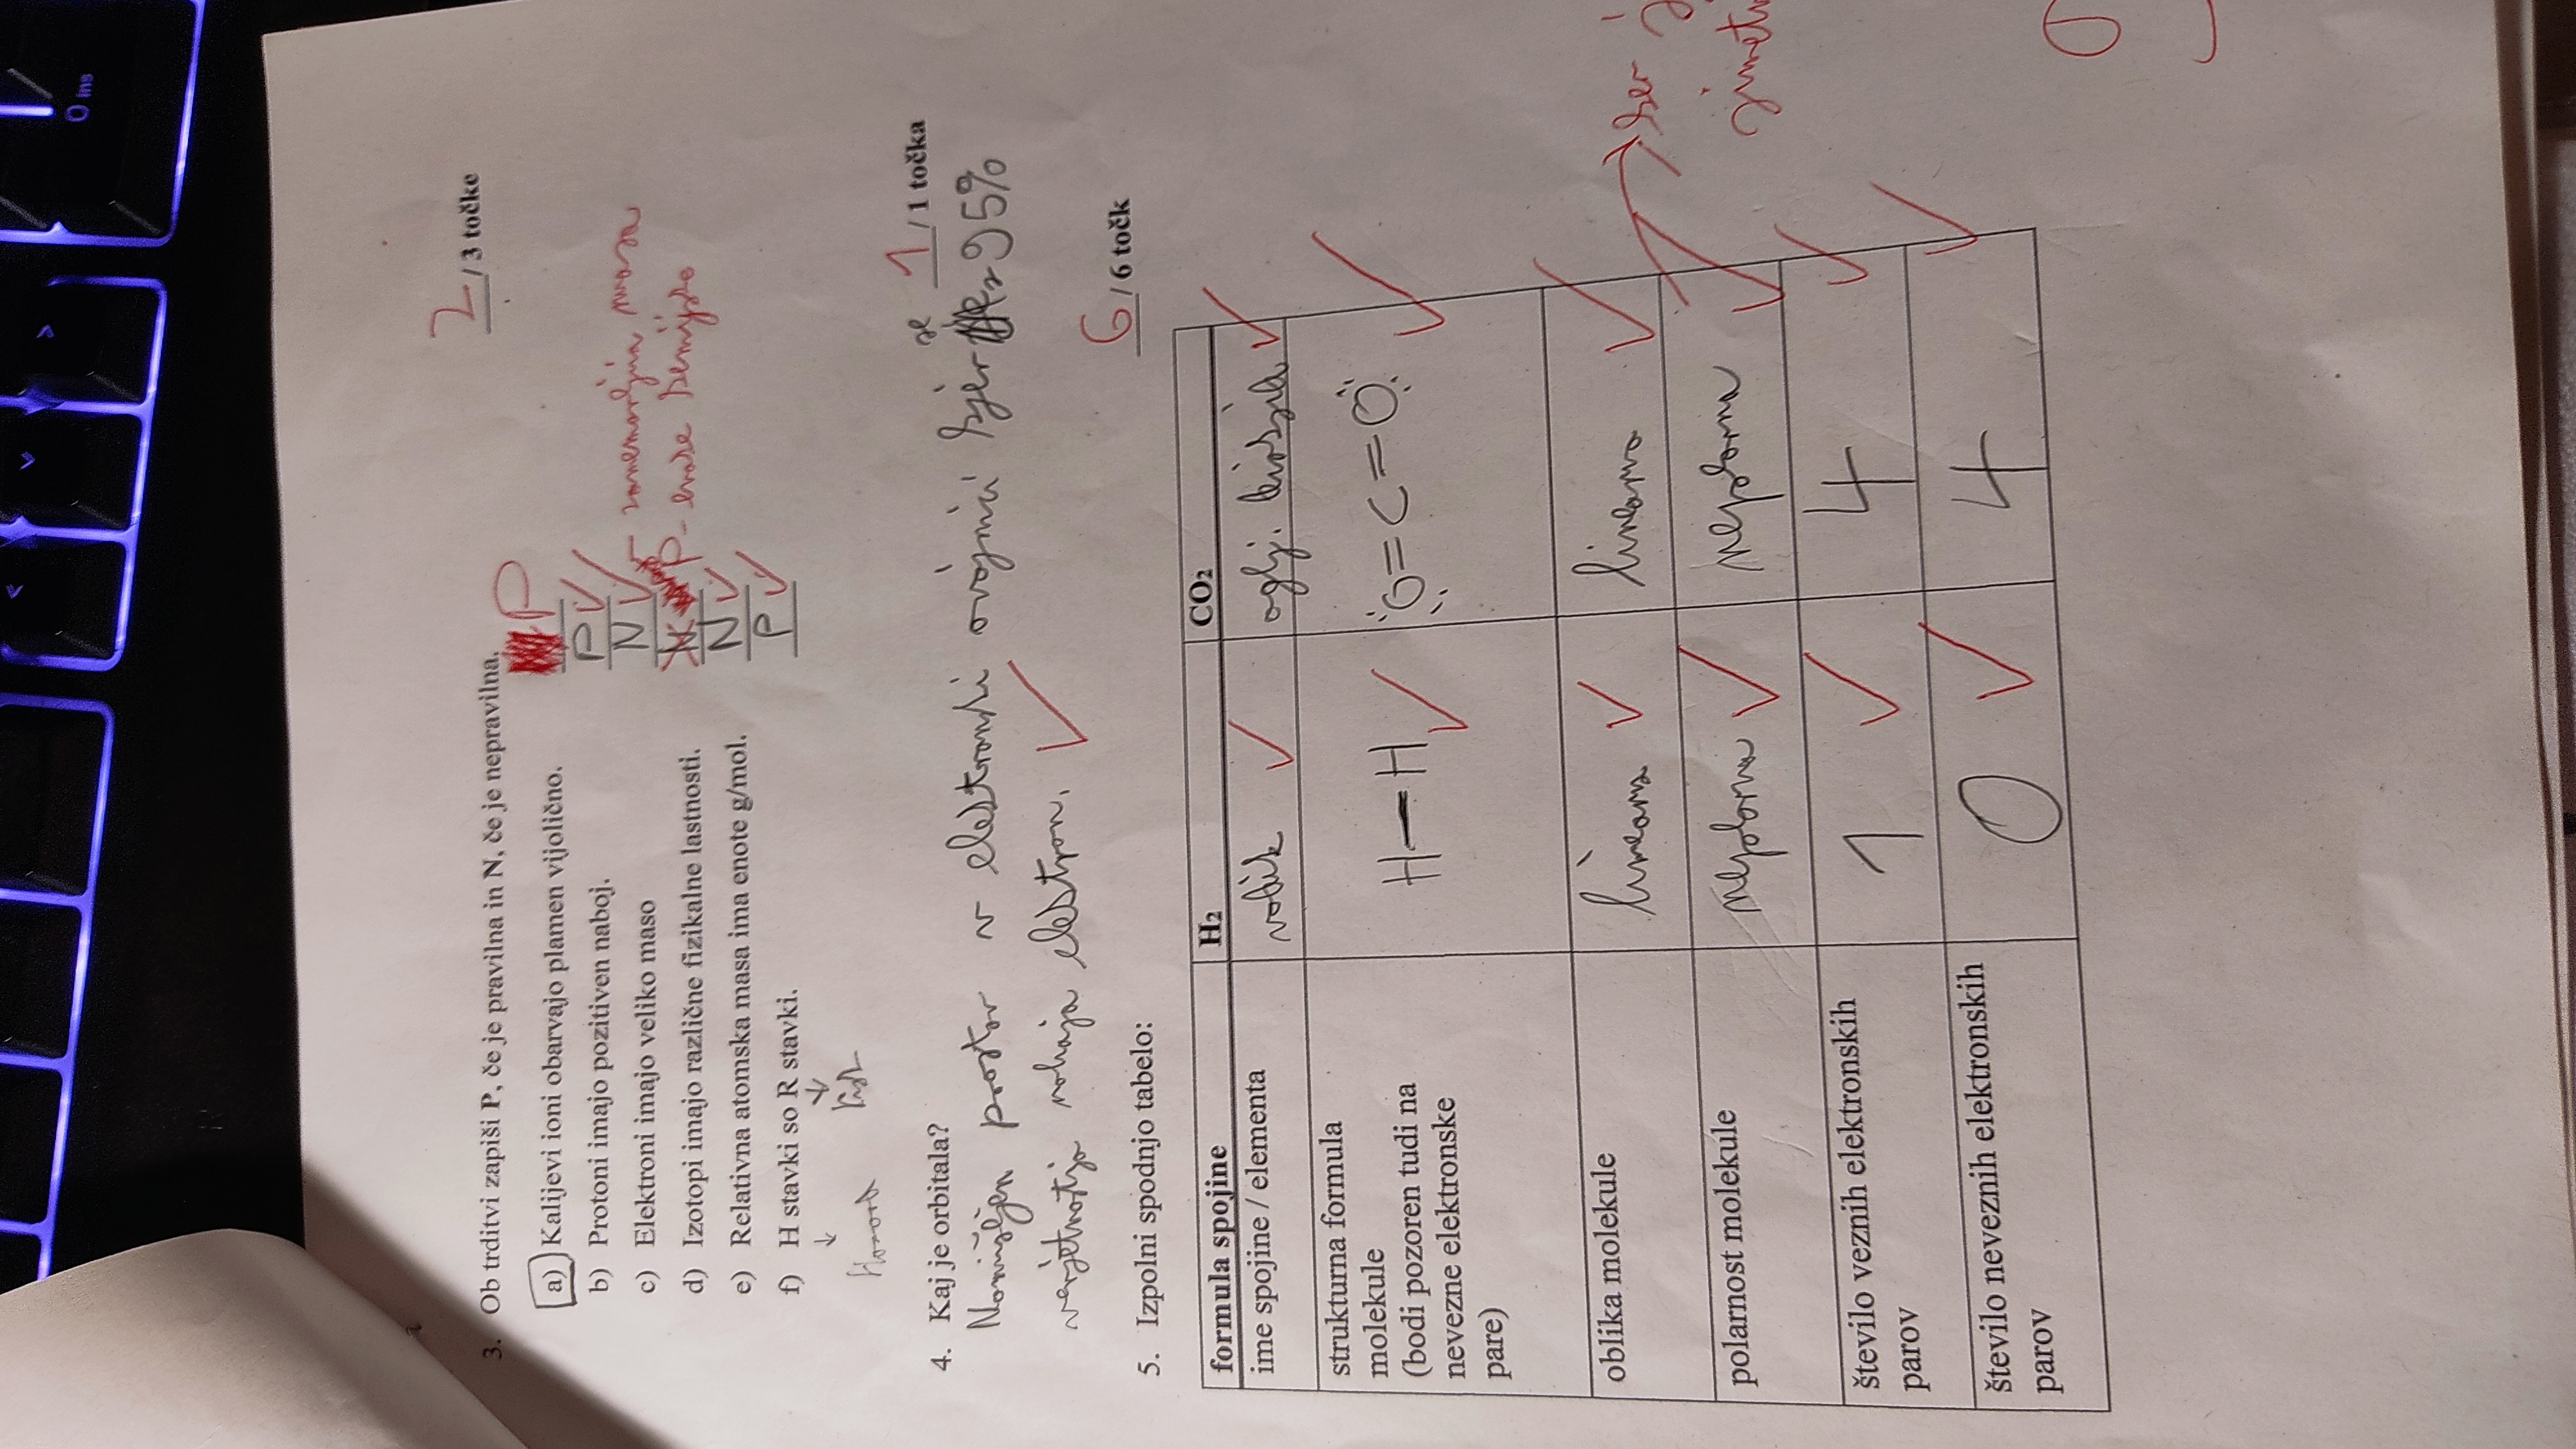 0 ins
2 / 3 točke
3. Ob trditvi zapiši P, če je pravilna in N, če je nepravilna.
a) Kalijevi ioni obarvajo plamen vijolično. P
b) Protoni imajo pozitiven naboj. P
c) Elektroni imajo veliko maso N - zanemarljiva masa
d) Izotopi imajo različne fizikalne lastnosti. N P - enake kemijske
e) Relativna atomska masa ima enote g/mol. N
f) H stavki so R stavki. P
Hazard Risk
1 / 1 točka
4. Kaj je orbitala?
Namišljen prostor v elektronski ovojnici kjer se z 95%
verjetnostjo nahaja elektron.
6 / 6 točk
5. Izpolni spodnjo tabelo:
formula spojine H₂ CO₂
ime spojine / elementa vodik oglj. dioksid
strukturna formula
molekule
(bodi pozoren tudi na H—H O=C=O
nevezne elektronske
pare)
oblika molekule linearna linearna
ker
polarnost molekule nepolarna nepolarna
število veznih elektronskih
parov 1 4
število neveznih elektronskih
parov 0 4